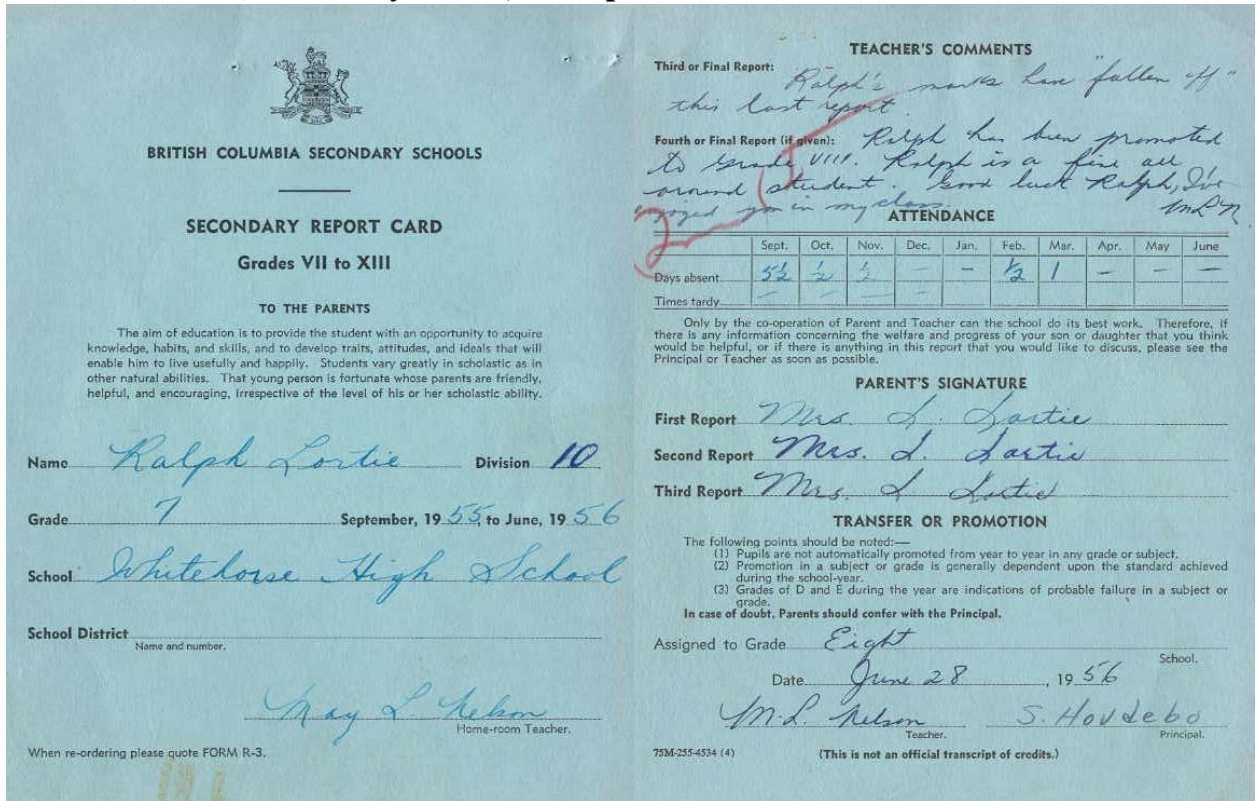 BRITISH COLUMBIA SECONDARY SCHOOLS
SECONDARY REPORT CARD
Grades VII to XIII
TO THE PARENTS
The aim of education is to provide the student with an opportunity to acquire
knowledge, habits, and skills, and to develop traits, attitudes, and ideals that will
enable him to live usefully and happily. Students vary greatly in scholastic as in
other natural abilities. That young person is fortunate whose parents are friendly,
helpful, and encouraging, irrespective of the level of his or her scholastic ability.
Name Ralph Lortie Division 10
Grade 7 September, 1955, to June, 1956
School Whitehorse High School
School District
Name and number.
May L. Nelson
Home-room Teacher.
When re-ordering please quote FORM R-3.
TEACHER'S COMMENTS
Third or Final Report: Ralph's marks have "fallen off"
this last report.
Fourth or Final Report (if given): Ralph has been promoted
to Grade VIII. Ralph is a fine all
around student. Good luck Ralph, I've
enjoyed you in my class. M.L.N.
ATTENDANCE
Sept. Oct. Nov. Dec. Jan. Feb. Mar. Apr. May June
Days absent 5½ ½ ½ – – ½ 1 – – –
Times tardy – – – –
Only by the co-operation of Parent and Teacher can the school do its best work. Therefore, if
there is any information concerning the welfare and progress of your son or daughter that you think
would be helpful, or if there is anything in this report that you would like to discuss, please see the
Principal or Teacher as soon as possible.
PARENT'S SIGNATURE
First Report Mrs. L. Lortie
Second Report Mrs. L. Lortie
Third Report Mrs. L Lortie
TRANSFER OR PROMOTION
The following points should be noted:—
(1) Pupils are not automatically promoted from year to year in any grade or subject.
(2) Promotion in a subject or grade is generally dependent upon the standard achieved
during the school-year.
(3) Grades of D and E during the year are indications of probable failure in a subject or
grade.
In case of doubt, Parents should confer with the Principal.
Assigned to Grade Eight
School.
Date June 28, 1956
M.L. Nelson S. Hovdebo
Teacher. Principal.
75M-255-4534 (4) (This is not an official transcript of credits.)